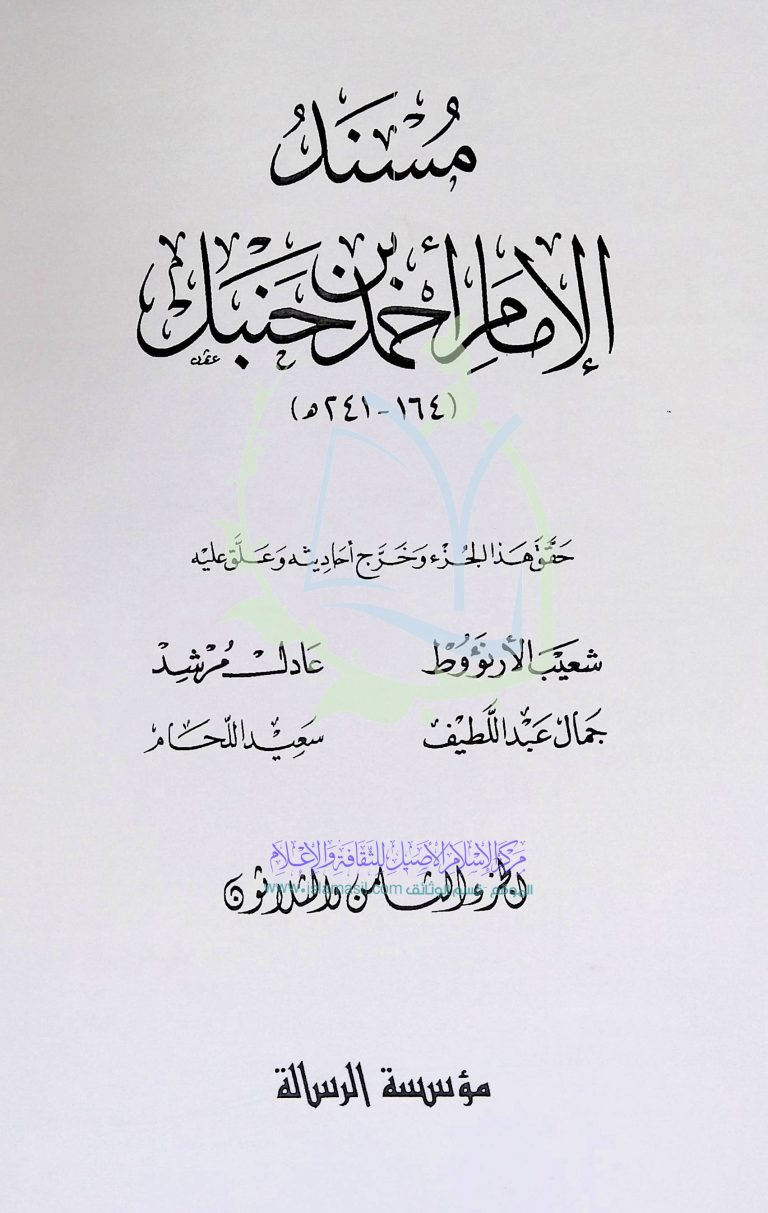 مُسْنَدُ
الإمَامِ أَحْمَد بْن حَنْبَل
(١٦٤ - ٢٤١ هـ)
حَقَّقَ هَذَا الجُزْء وَخَرَّج أحَادِيثه وَعَلَّق عَلَيْه
شعَيْبَ الأرنؤُوط عَادل مُرْشِد
جَمَال عَبْد اللَّطِيْف سَعِيْد اللّحَام
مركز الإسلام الأصيل للثقافة والإعلام
www.islamasil.com الموقع قسم الوثائق
الجزء الثَّامن وَالثلاثون
مؤسسة الرسالة